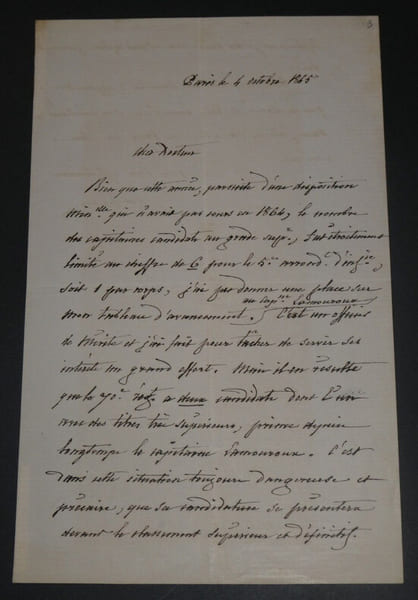 3
Paris le 4 octobre 1865
Cher Docteur
Bien que cette année, par suite d'une disposition
Minlle qui n'avait pas cours en 1864, le nombre
des capitaines candidats au grade supr., fut strictement
limité au chiffre de 6 pour le 5e arrond. d'infie,
soit 1 par corps, j'ai pu donner une place sur
au capne Lamouroux
mon tableau d'avancement. C'est un officier
de mérite et j'ai fait pour tâcher de servir ses
intérêts un grand effort. Mais il en résulte
que le 70e a deux candidats dont l'un
avec des titres très supérieurs, prime depuis
longtemps le capitaine Lamouroux. C'est
dans cette situation toujours dangereuse et
précaire, que sa candidature se présentera
devant le classement supérieur et définitif.